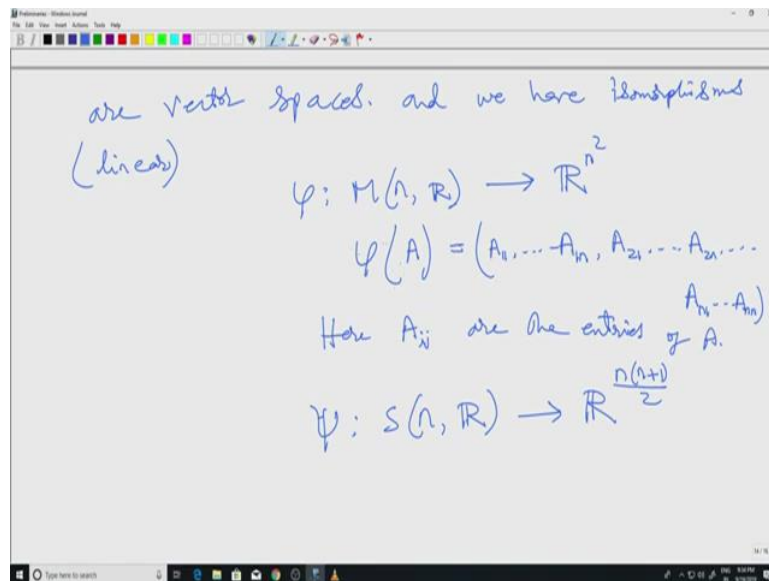 Preliminaries - Windows Journal
File Edit View Insert Actions Tools Help
are vector spaces. and we have isomorphisms
(linear)
φ: M(n, ℝ) → ℝ^{n^2}
φ(A) = (A_{11}, ... A_{1n}, A_{21}, ... A_{2n}, ...
A_{n1} ... A_{nn})
Here A_{ij} are the entries of A.
ψ: S(n, ℝ) → ℝ^{\frac{n(n+1)}{2}}
Type here to search